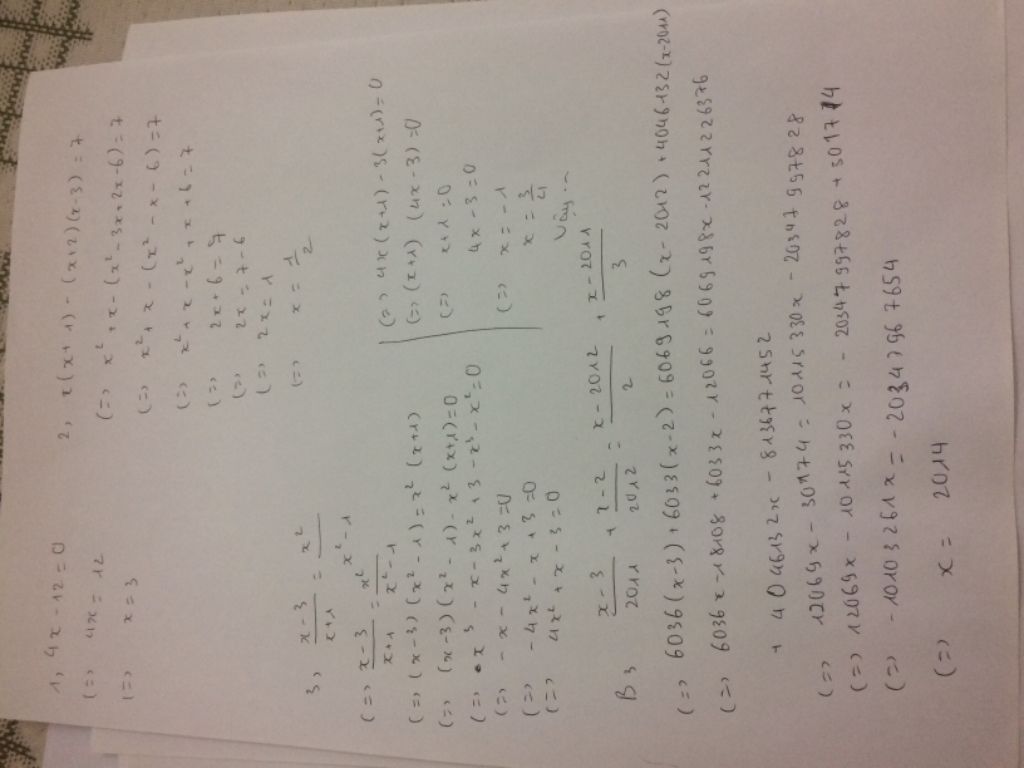 1, 4x - 12 = 0
(=) 4x = 12
(=) x = 3
2, x(x+1) - (x+2)(x-3) = 7
(=) x² + x - (x² - 3x + 2x - 6) = 7
(=) x² + x - (x² - x - 6) = 7
(=) x² + x - x² + x + 6 = 7
(=) 2x + 6 = 7
(=) 2x = 7 - 6
(=) 2x = 1
(=) x = 1/2
3, (x-3)/(x+1) = x²/(x²-1)
(=) (x-3)/(x+1) = x²/(x²-1)
(=) (x-3)(x²-1) = x²(x+1)
(=) (x-3)(x²-1) - x²(x+1) = 0
(=) x³ - x - 3x² + 3 - x³ - x² = 0
(=) - x - 4x² + 3 = 0
(=) -4x² - x + 3 = 0
(=) 4x² + x - 3 = 0
(=) 4x(x+1) - 3(x+1) = 0
(=) (x+1)(4x-3) = 0
(=) x+1 = 0
4x - 3 = 0
(=) x = -1
x = 3/4
Vậy ...
B, (x-3)/2011 + (x-2)/2012 = (x-2012)/2 + (x-2011)/3
(=) 6036(x-3) + 6033(x-2) = 6069198(x-2012) + 4046132(x-2011)
(=) 6036x - 18108 + 6033x - 12066 = 6069198x - 12211226376
+ 4046132x - 8136771452
(=) 12069x - 30174 = 10115330x - 20347997828
(=) 12069x - 10115330x = - 20347997828 + 30174
(=) -10103261x = - 20347967654
(=) x = 2014